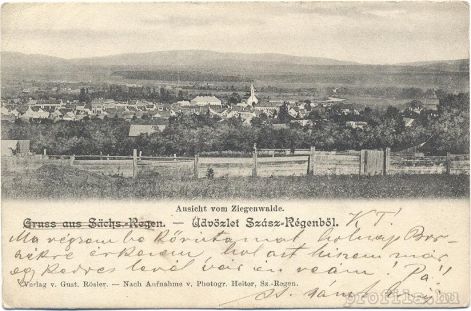 Ansicht vom Ziegenwalde.
Gruss aus Sächs.-Regen. — Üdvözlet Szász-Régenből. K T!
Ma végzem be körutamat holnap
érkezem, hol azt hiszem már
egy kedves levél vár én reám! Pá!
Verlag v. Gust. Rösler. — Nach Aufnahme v. Photogr. Heiter, Sz.-Regen.
profila.hu